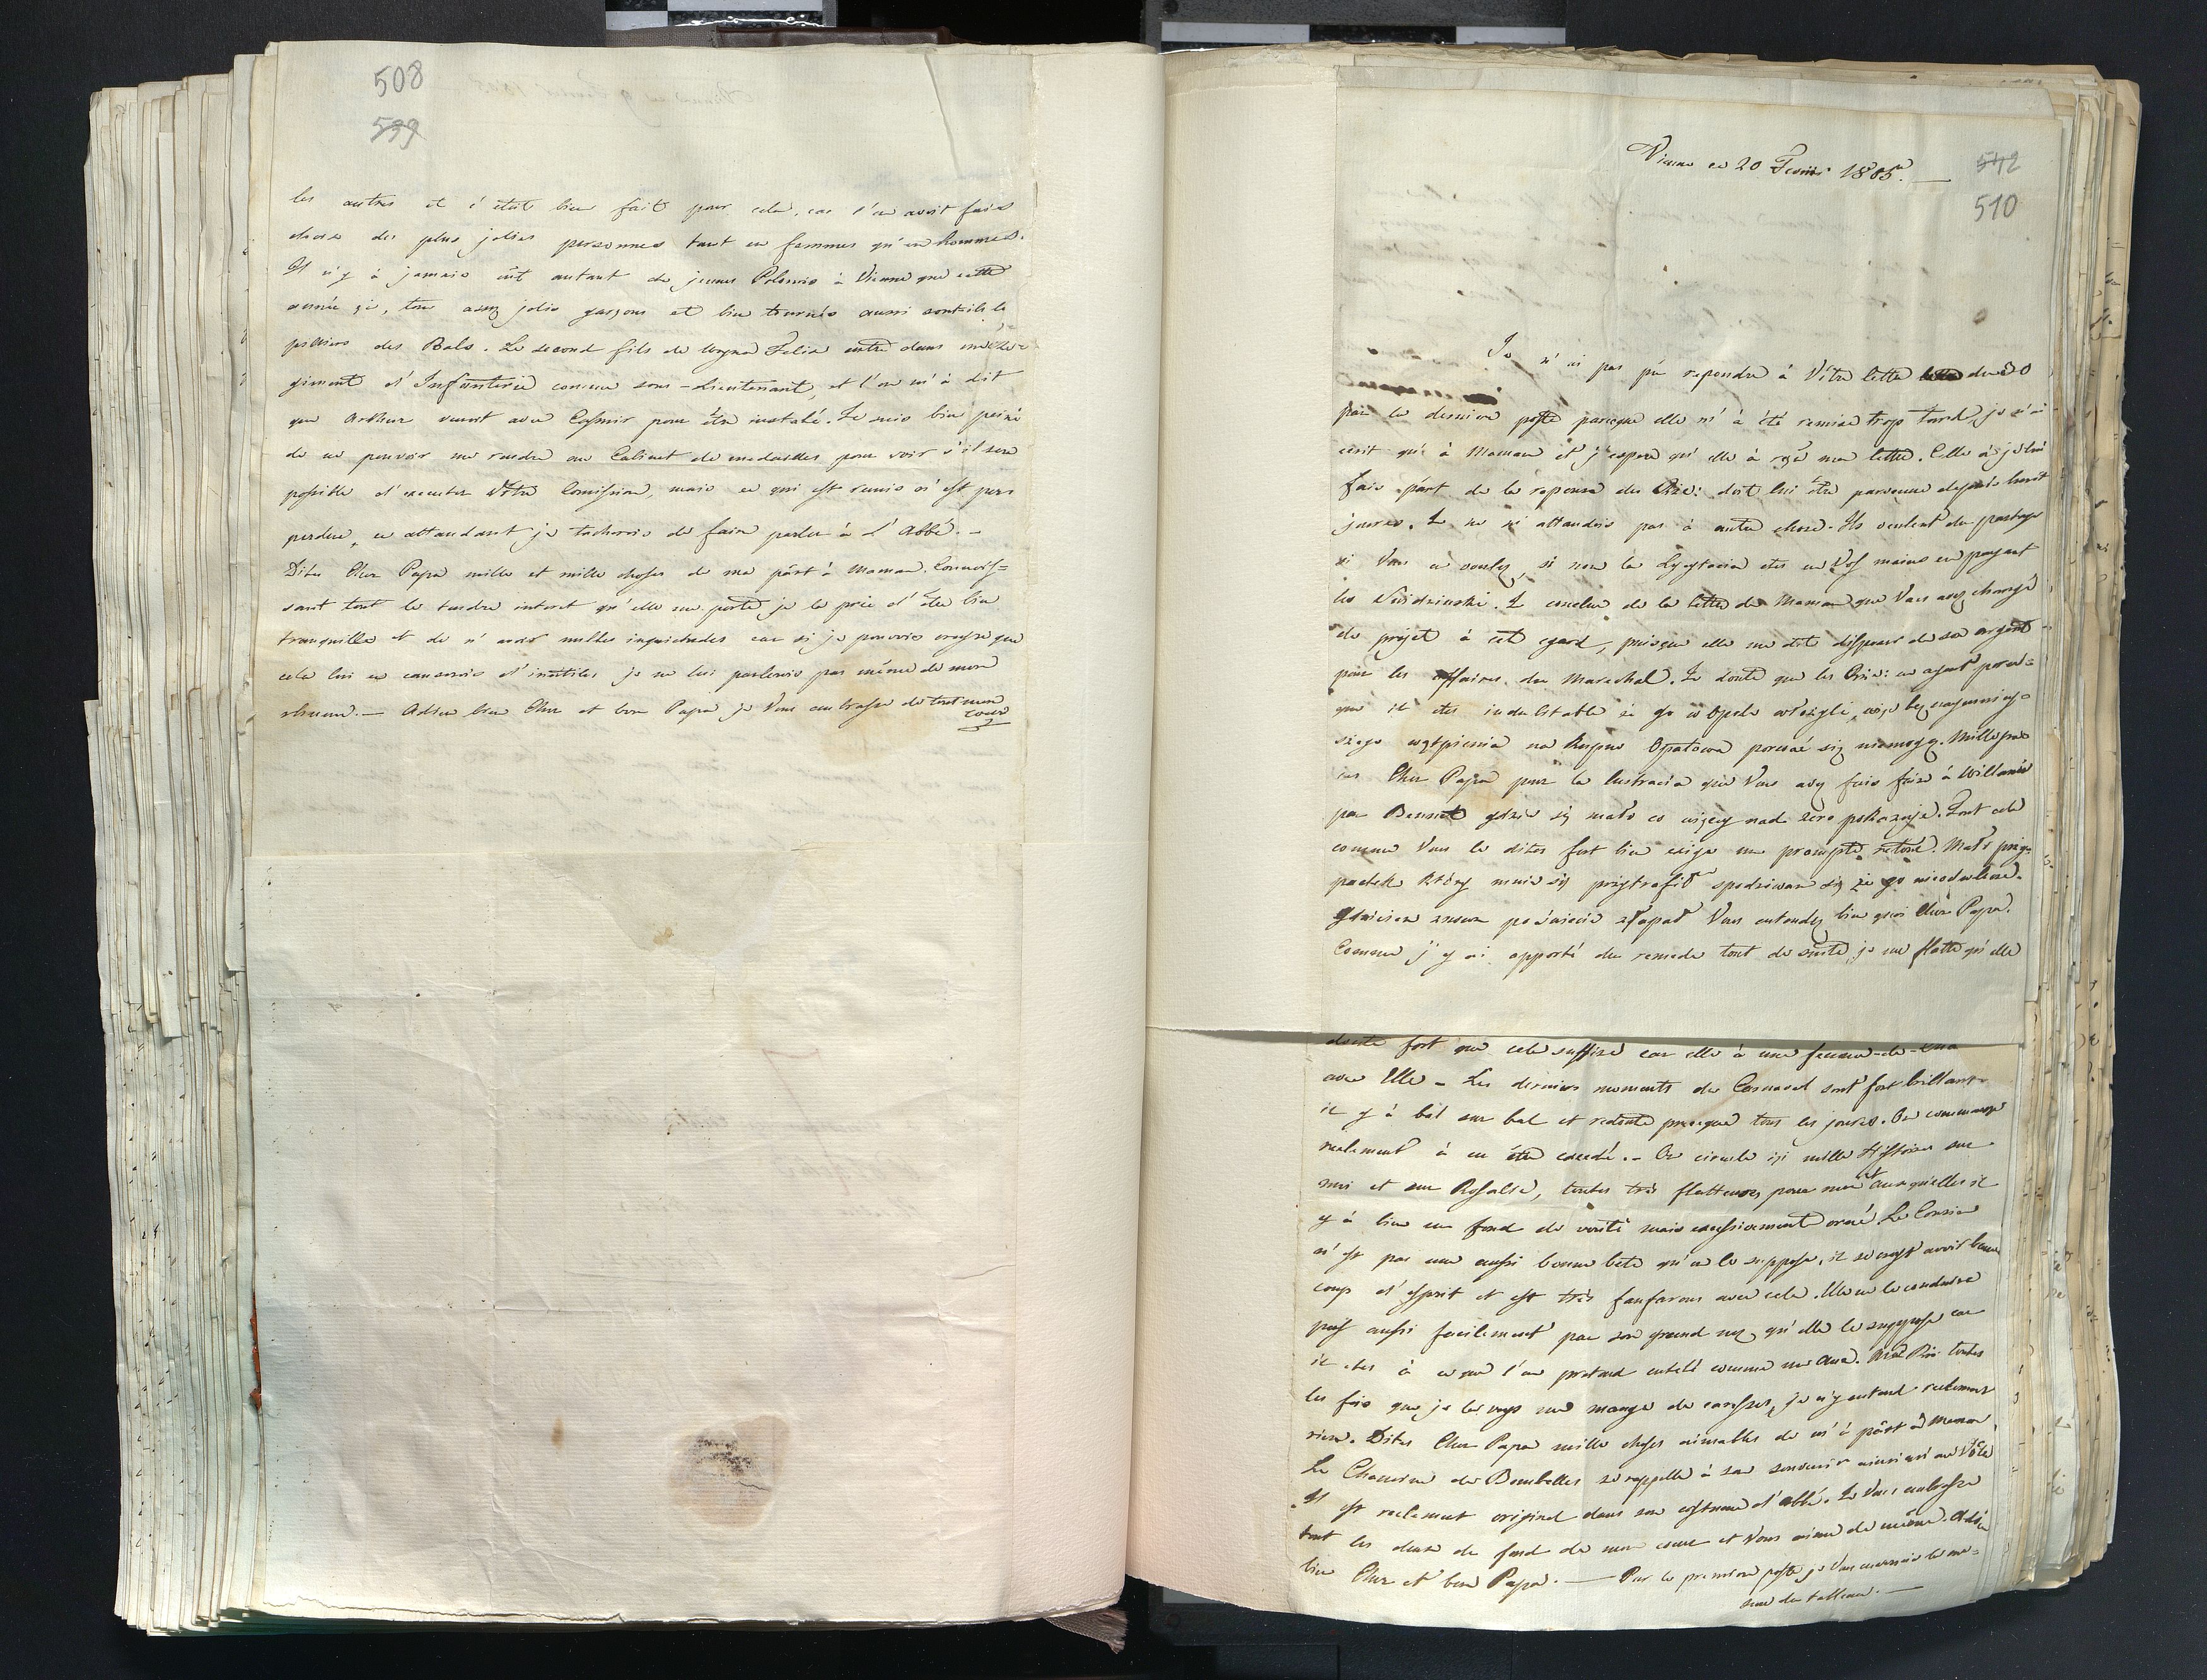 508
599
les autres et c'etait bien fait pour cela, car l'on avoit fait
choix des plus jolies personnes tant en femmes qu'en hommes.
Il n'y à jamais eût autant de jeunes Polonois à Vienne que cette
année çi, tous assez jolis garçons et bien tournés aussi sont-ils le
pilliers des Bals. Le second fils de Felix entre dans un Ré=
giment d'Infanterie comme sous-Lieutenant, et l'on m'à dit
que Arthur venoit avec Casmir pour être installé. Je suis bien peiné
de ne pouvoir me rendre au Cabinet de medailles pour voir s'il sera
possible d'executer Vôtre Comission, mais ce qui est remis n'est pas
perdue, en attendant je tacherois de faire parler à l'Abbé. -
Dites Cher Papa mille et mille choses de ma pârt à Maman. Connois=
sant tout le tendre interet qu'elle me porte je la prie d'être bien
tranquille et de n'avoir nulles inquietudes car si je pouvois croyre que
cela lui en causerois d'inutiles je ne lui parlerois pas même de mon
rhume. — Adieu bien Cher et bon Papa je Vous embrasse de tout mon
coeur
542
510
Vienne ce 20 Fevrier 1805. —
Je n'ai pas pû repondre à Vôtre lettre du 30
par la derniere poste parceque elle m'à été remise trop tard, je n'ai
écrit qu'à Maman et j'espere qu'elle à reçû ma lettre. Celle où je lui
fais pârt de la reponse des doit lui être parvenue depuis huit
jours. Je ne m'attendois pas à autre chose. Ils veulent du partage
si Vous en voulez, si non la Licytacia etes en Vos mains en payant
les Swidzinski. Je conclue de la lettre de Maman que Vous avez changé
de projet à cet egard, puisque elle me dit disposer de son argent
pour les affaires du Marechal. Je doute que les en ayant
que il etes indubitable że go w Opole włożyli, więc bez naymniey=
szego wątpienia na Kupno Opatowa porwać się niemogą. Mille
Cher Papa pour la lustracia que Vous avez fais faire à Willanów
par Bennet gdzie się mało co więcey nad zero pokazuje. Tout cela
comme Vous le dites fort bien exige un prompte retour. Mały przy=
padek który mnie się przytrafił spodziwam się że go nieodwlecze.
znown złapał Vous entendez bien quoi Cher Papa.
Comme j'y ai apporté du remede tout de suite, je me flatte qu'elle
doute fort que cela suffise car elle à une femme-de-
avec Elle - Les derniers moments du Carnaval sont fort brillants
il y à bal sur bal et redoute presque tous les jours. On commence
reelement à en être excedé. - On circule içi mille Histoires sur
moi et sur Rosalie, toutes très flatteuses pour moi et auxquelles il
y à bien un fond de verité mais excessivement orné. Le Cousin
n'est pas une aussi bonne bete qu'on le suppose, il se croyt avoir beau
coup d'esprit et est très fanfaron avec cela. Elle ne le conduira
pas aussi facilement par son grand nez qu'elle le suppose car
il etes à ce que l'on pretend entété comme un Ane. toutes
les fois que je les voys me mange de caresses, je n'y entend reelement
rien. Dites Cher Papa mille choses aimables de m'à pârt à Maman
Le Chanoine de Bombelles se rappelle à son souvenir ainsi qu'au Vôtre
Il est reelement original dans son costume d'abbé. Je Vous embrasse
tout les deux du fond de mon coeur et Vous aime de même. Adieu
bien Cher et bon Papa. — Par la premiere poste je Vous enverrois la me=
sure du tableau. —